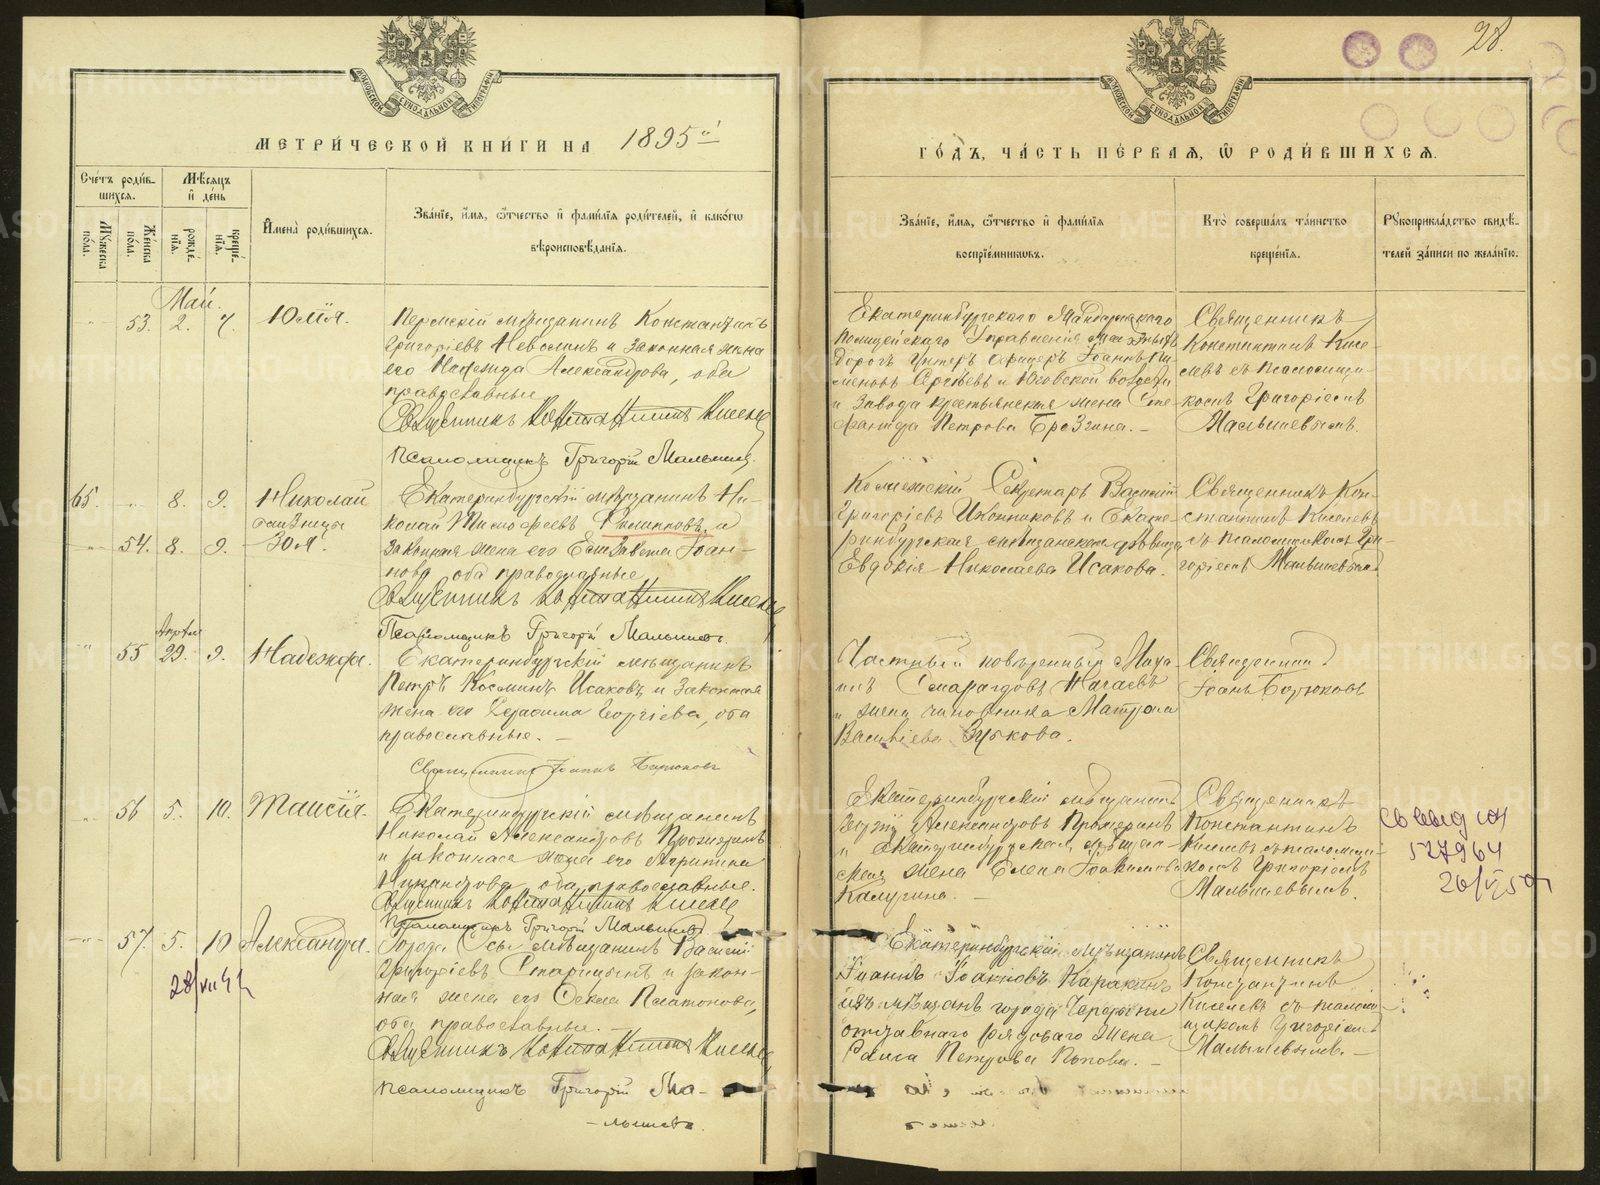 28.
МЕТРИ́ЧЕСКОЙ КНИ́ГИ НА 1895й
ГО́ДЪ, ЧА́СТЬ ПЕ́РВАЯ, Ѿ РОДИ́ВШИХСЯ.
Сче́тъ роди́в-
шихся.
Му́жеска по́ла.
Же́нска по́ла.
Мѣ́сяцъ и де́нь
рожде́нїя.
креще́нїя.
И҆мена̀ роди́вшихся.
Зва́нїе, и҆́мя, ѻ҆́тчество и҆ фами́лїя роди́телей, и҆ како́гѡ
вѣроисповѣ́данїя.
Зва́нїе, и҆́мя, ѻ҆́тчество и҆ фами́лїя
воспрїе́мниковъ.
Кто̀ соверша́лъ та́инство
креще́нїя.
Рꙋкоприкла́дство свидѣ́-
телей за́писи по жела́нїю.
Май.
53. 2. 7.
Юлія.
Пермскій мѣщанинъ Константинъ
Григоріевъ Неволинъ и законная жена
его Надежда Александрова, оба
православные
Священникъ Константинъ Киселевъ
Псаломщикъ Григорій Малышевъ.
Екатеринбургскаго
Полицейскаго Управленія
дорогъ Унтеръ Офицеръ Іоаннъ
Сергѣевъ и Юговской волости
и Завода крестьянская жена Сте-
фанида Петрова Брезгина. —
Священникъ
Константинъ Кисе-
левъ съ псаломщи-
комъ Григоріемъ
Малышевымъ.
65. 8. 9.
Николай
близнецы
54. 8. 9.
Зоя.
Екатеринбургскій мѣщанинъ Ни-
колай Тимофеевъ Филипповъ и
законная жена его Елизавета Іоан-
нова, оба православные
Священникъ Константинъ Киселевъ
Псаломщикъ Григорій Малышевъ.
Коллежскій Секретарь Василій
Григоріевъ Иконниковъ и Екате-
ринбургская мѣщанская дѣвица
Евдокія Николаева Исакова.
Священникъ Кон-
стантинъ Киселевъ
съ псаломщикомъ Гри-
горіемъ Малышевымъ
Апрѣля
55 29. 9.
Надежда.
Екатеринбургскій мѣщанинъ
Петръ Косминъ Исаковъ и законная
жена его Герасима Георгіева, оба
православные. —
Священникъ Іоаннъ Бирюковъ
Частный повѣренный Миха-
илъ Смарагдовъ Начаевъ
и жена чиновника Матрона
Василіева Зубкова.
Священникъ
Іоаннъ Бирюковъ
56 5. 10.
Таисія.
Екатеринбургскій мѣщанинъ
Николай Александровъ Прожеринъ
и законная жена его Агриппина
Никандрова, оба православные.
Священникъ Константинъ Киселевъ
Псаломщикъ Григорій Малышевъ
Екатеринбургскій мѣщанинъ
Александровъ Прожеринъ
и Екатеринбургская мѣщан-
ская жена Елена Іоакимова
Калугина. —
Священникъ
Константинъ
Киселевъ съ псаломщи-
комъ Григоріемъ
Малышевымъ.
57. 5. 10
Александра.
28/VII 41
Города Осы мѣщанинъ Василій
Григоріевъ Старицынъ и закон-
ная жена его Фекла Платонова,
оба православные. —
Священникъ Константинъ Киселевъ
Псаломщикъ Григорій Ма-
лышевъ.
Екатеринбургскій мѣщанинъ
Іоаннъ Іоанновъ Каракинъ
изъ мѣщанъ города Чердыни
отставнаго рядоваго жена
Раиса Петрова Попова. —
Священникъ
Константинъ
Киселевъ съ псалом-
щикомъ Григоріемъ
Малышевымъ. —
527964